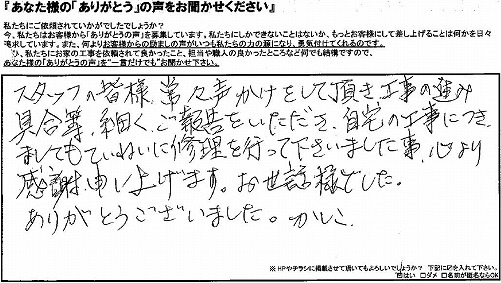 『あなた様の「ありがとう」の声をお聞かせください』
私たちにご依頼されていかがでしたでしょうか？
今、私たちはお客様から「ありがとうの声」を募集しています。私たちにしかできないことはないか、もっとお客様にして差し上げることは何かを日々
追求しています。また、何よりお客様からの励ましの声がいつも私たちの力の源になり、勇気付けてくれるのです。
ぜひ、私たちにお家の工事を依頼されて良かったこと、担当や職人の良かったところなど何でも結構ですので、
あなた様の「ありがとうの声」を“一言だけでも”お聞かせ下さい。
スタッフの皆様、常々声かけをして頂き、工事の進み
具合等、細く、ご報告をいただき、自宅の工事につき
ましてもていねいに修理を行って下さいました事、心より
感謝申し上げます。お世話様でした。
ありがとうございました。かしこ
※HPやチラシに掲載させて頂いてもよろしいでしょうか？ 下記に☑を入れて下さい。
はい □ダメ □名前が匿名ならOK